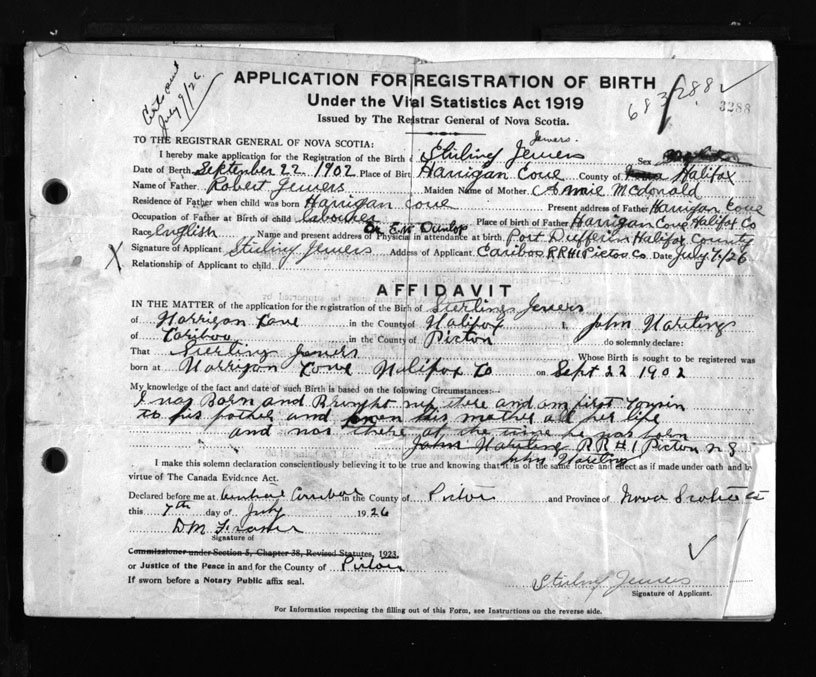 Cert. sent
July 9/26
APPLICATION FOR REGISTRATION OF BIRTH
Under the Vital Statistics Act 1919
Issued by The Registrar General of Nova Scotia.
683/288 ✓
3288
TO THE REGISTRAR GENERAL OF NOVA SCOTIA:
Jewers.
I hereby make application for the Registration of the Birth of Stirling Jewers Sex
Date of Birth September 22 1902 Place of Birth Harrigan Cove County of Halifax
Name of Father Robert Jewers Maiden Name of Mother Annie McDonald
Residence of Father when child was born Harrigan Cove Present address of Father Harrigan Cove
Occupation of Father at Birth of child labourer Place of birth of Father Harrigan Cove Halifax Co
Race English Name and present address of Physician in attendance at birth Dr E.K. Dunlop Port Dufferin Halifax County
X Signature of Applicant Stirling Jewers Address of Applicant Caribou RR#1 Pictou Co. Date July 7/26
Relationship of Applicant to child
AFFIDAVIT
IN THE MATTER of the application for the registration of the Birth of Sterling Jewers
of Harrigan Cove in the County of Halifax I, John Harting
of Caribou in the County of Pictou do solemnly declare:
That Sterling Jewers Whose Birth is sought to be registered was
born at Harrigan Cove Halifax Co on Sept 22 1902
My knowledge of the fact and date of such Birth is based on the following Circumstances:—
I was Born and Brought up there and am first Cousin
to his father and his mother all her life
and was there at the time he was born
John Harting RR#1 Pictou N S
John Harting
I make this solemn declaration conscientiously believing it to be true and knowing that it is of the same force and effect as if made under oath and by
virtue of The Canada Evidence Act.
Declared before me at Caribou in the County of Pictou and Province of Nova Scotia
this 7th day of July 1926
D.M. Fraser
Signature of
Commissioner under Section 5, Chapter 38, Revised Statutes, 1923,
or Justice of the Peace in and for the County of Pictou
If sworn before a Notary Public affix seal.
✓
Stirling Jewers
Signature of Applicant.
For Information respecting the filling out of this Form, see Instructions on the reverse side.